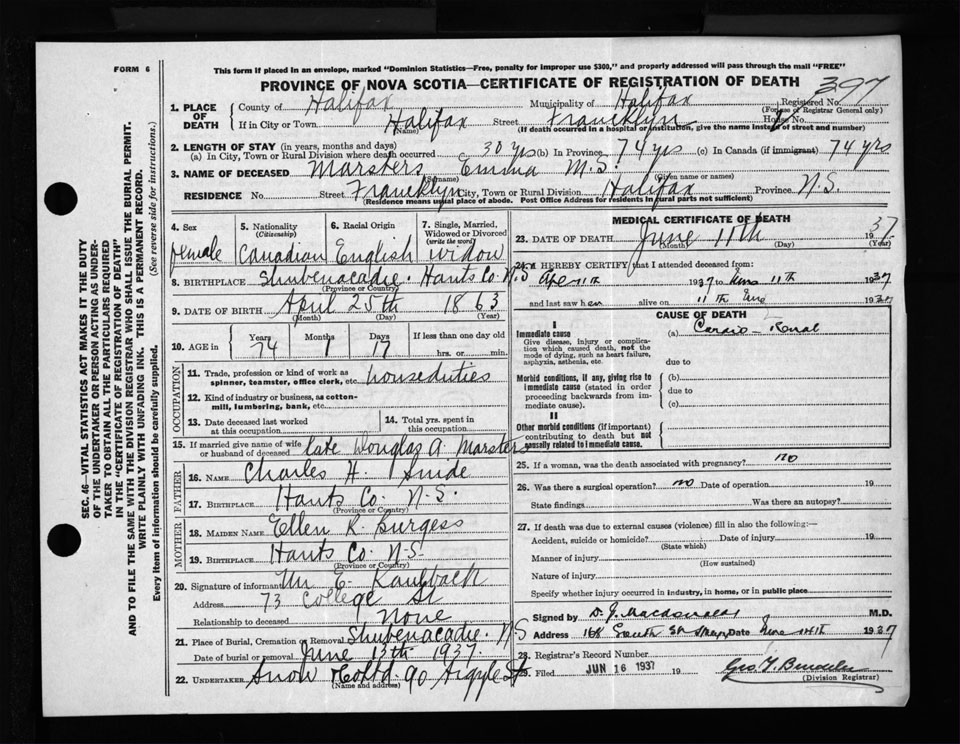 FORM 6
This form if placed in an envelope, marked "Dominion Statistics—Free, penalty for improper use $300," and properly addressed will pass through the mail "FREE"
PROVINCE OF NOVA SCOTIA—CERTIFICATE OF REGISTRATION OF DEATH
397
1. PLACE OF DEATH
County of Halifax Municipality of Halifax Registered No.
(For use of Registrar General only)
If in City or Town Halifax Street Francklyn House No.
(Name) (If death occurred in a hospital or institution, give the name instead of street and number)
2. LENGTH OF STAY (in years, months and days)
(a) In City, Town or Rural Division where death occurred 30 yrs (b) In Province 74 yrs (c) In Canada (if immigrant) 74 yrs
3. NAME OF DECEASED Marsters Emma M.S.
(Surname) (Given name or names)
RESIDENCE No. Street Francklyn City, Town or Rural Division Halifax Province N.S.
(Residence means usual place of abode. Post Office Address for residents in rural parts not sufficient)
4. Sex female
5. Nationality (Citizenship) Canadian
6. Racial Origin English
7. Single, Married, Widowed or Divorced (write the word) widow
8. BIRTHPLACE Shubenacadie. Hants Co. N.S
(Province or Country)
9. DATE OF BIRTH April 25th 1863
(Month) (Day) (Year)
10. AGE in Years 74 Months 1 Days 17 If less than one day old hrs. or min.
OCCUPATION
11. Trade, profession or kind of work as spinner, teamster, office clerk, etc. houseduties
12. Kind of industry or business, as cotton-mill, lumbering, bank, etc.
13. Date deceased last worked at this occupation
14. Total yrs. spent in this occupation
15. If married give name of wife or husband of deceased late Douglas A. Marsters
FATHER
16. NAME Charles H.
17. BIRTHPLACE Hants Co. N.S.
(Province or Country)
MOTHER
18. MAIDEN NAME Ellen R. Burgess
19. BIRTHPLACE Hants Co. N.S.
(Province or Country)
20. Signature of informant E. Kaulback
Address 73 College St
Relationship to deceased None
21. Place of Burial, Cremation or Removal Shubenacadie. N.S
Date of burial or removal June 13th 1937.
22. UNDERTAKER Snow & Co Ltd. 90 Argyle St
(Name and address)
MEDICAL CERTIFICATE OF DEATH
23. DATE OF DEATH June 11th 1937
(Month) (Day) (Year)
24. I HEREBY CERTIFY that I attended deceased from:
Apr 11th 1937 to June 11th 1937
and last saw her alive on 11th June 1937
CAUSE OF DEATH
I
Immediate cause
Give disease, injury or complication which caused death, not the mode of dying, such as heart failure, asphyxia, asthenia, etc.
(a) Cardio-Renal
due to
Morbid conditions, if any, giving rise to immediate cause (stated in order proceeding backwards from immediate cause).
(b)
due to
(c)
II
Other morbid conditions (if important) contributing to death but not causally related to immediate cause.
25. If a woman, was the death associated with pregnancy? no
26. Was there a surgical operation? no Date of operation 19
State findings Was there an autopsy?
27. If death was due to external causes (violence) fill in also the following:—
Accident, suicide or homicide? Date of injury 19
(State which)
Manner of injury
(How sustained)
Nature of injury
Specify whether injury occurred in industry, in home, or in public place
Signed by D. J. Macdonald M.D.
Address 168 South St Date June 1937
28. Registrar's Record No.
29. Filed JUN 16 1937 19
(Division Registrar)
SEC. 46—VITAL STATISTICS ACT MAKES IT THE DUTY
OF THE UNDERTAKER OR PERSON ACTING AS UNDER-
TAKER TO OBTAIN ALL THE PARTICULARS REQUIRED
IN THE "CERTIFICATE OF REGISTRATION OF DEATH"
AND TO FILE THE SAME WITH THE DIVISION REGISTRAR WHO SHALL ISSUE THE BURIAL PERMIT.
WRITE PLAINLY WITH UNFADING INK. THIS IS A PERMANENT RECORD.
Every item of information should be carefully supplied. (See reverse side for instructions.)